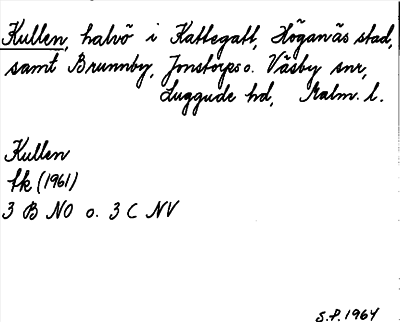 Kullen, halvö i Kattegatt, Höganäs stad,
samt Brunnby, Jonstorps o. Väsby snr,
Luggude hd, Malm. l.
Kullen
fk (1961)
3 B NO o. 3 C NV
S.P. 1964